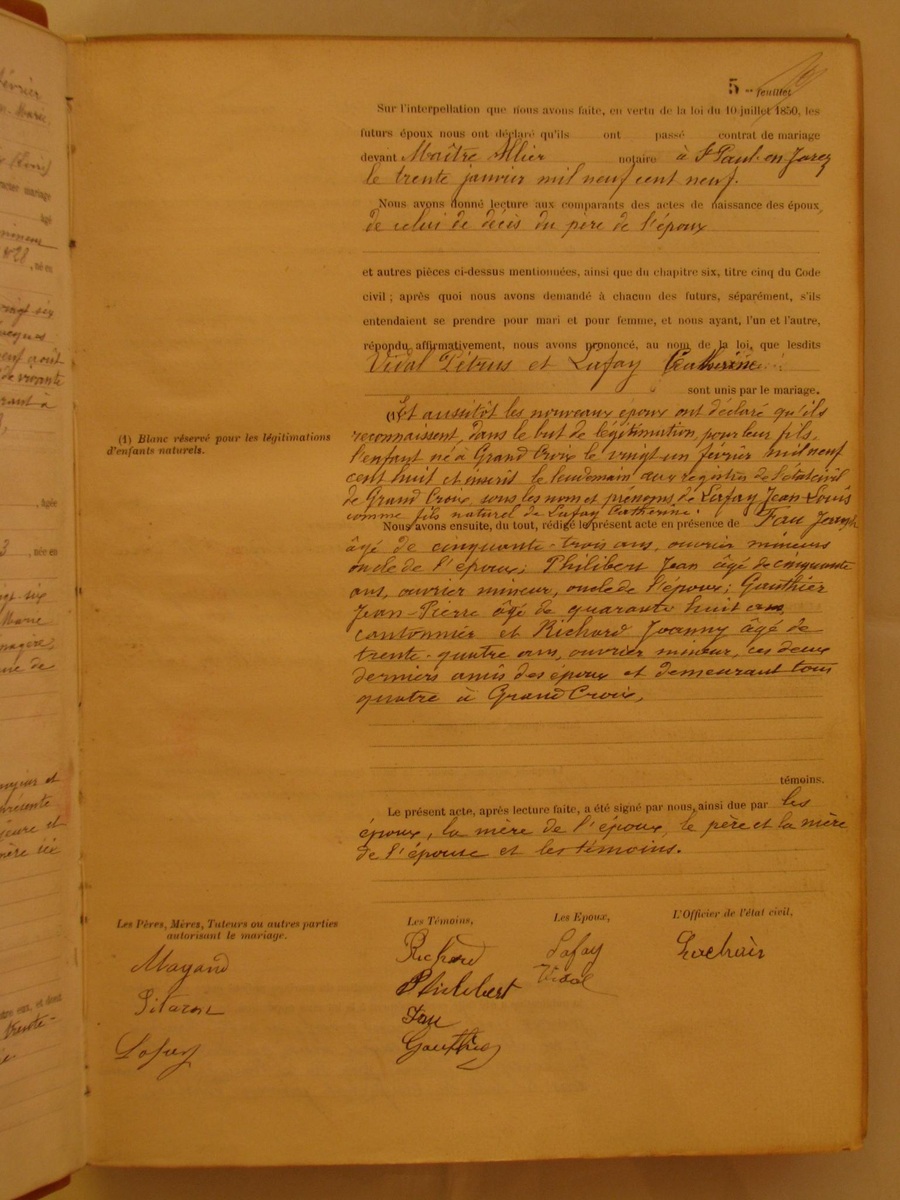 février
Marie,
mariage
âgé
mineur
, né en
vingt six
, âgée
3 , née en
six
Marie
de
et
et
, et dont
trente-
5 - feuillet
Sur l'interpellation que nous avons faite, en vertu de la loi du 10 juillet 1850, les
futurs époux nous ont déclaré qu'ils ont passé contrat de mariage
devant Maître Allier notaire à St Paul-en-Jarez
le trente janvier mil neuf cent neuf.
Nous avons donné lecture aux comparants des actes de naissance des époux,
de celui de décès du père de l'époux
et autres pièces ci-dessus mentionnées, ainsi que du chapitre six, titre cinq du Code
civil ; après quoi nous avons demandé à chacun des futurs, séparément, s'ils
entendaient se prendre pour mari et pour femme, et nous ayant, l'un et l'autre,
répondu affirmativement, nous avons prononcé, au nom de la loi, que lesdits
Vidal Pétrus et Lafay Catherine
sont unis par le mariage.
(1) Et aussitôt les nouveaux époux ont déclaré qu'ils
reconnaissent, dans le but de légitimation, pour leur fils,
l'enfant né à Grand Croix le vingt un février mil neuf
cent huit et inscrit le lendemain aux registres de l'état civil
de Grand Croix, sous les nom et prénoms de Lafay Jean Louis
comme fils naturel de Lafay Catherine.
(1) Blanc réservé pour les légitimations
d'enfants naturels.
Nous avons ensuite, du tout, rédigé le présent acte en présence de Fau Joseph
âgé de cinquante-trois ans, ouvrier mineur
oncle de l'époux; Philibert Jean âgé de cinquante
ans, ouvrier mineur, oncle de l'époux; Gauthier
Jean-Pierre âgé de quarante huit ans
cantonnier et Richard Joanny âgé de
trente-quatre ans, ouvrier mineur, ces deux
derniers amis des époux et demeurant tous
quatre à Grand Croix,
témoins.
Le présent acte, après lecture faite, a été signé par nous, ainsi due par les
époux, la mère de l'époux, le père et la mère
de l'épouse et les témoins.
Les Pères, Mères, Tuteurs ou autres parties
autorisant le mariage.
Mayand
Pitaron
Lafay
Les Témoins,
Richard
Philibert
Fau
Gauthier
Les Epoux,
Lafay
Vidal
L'Officier de l'état civil,